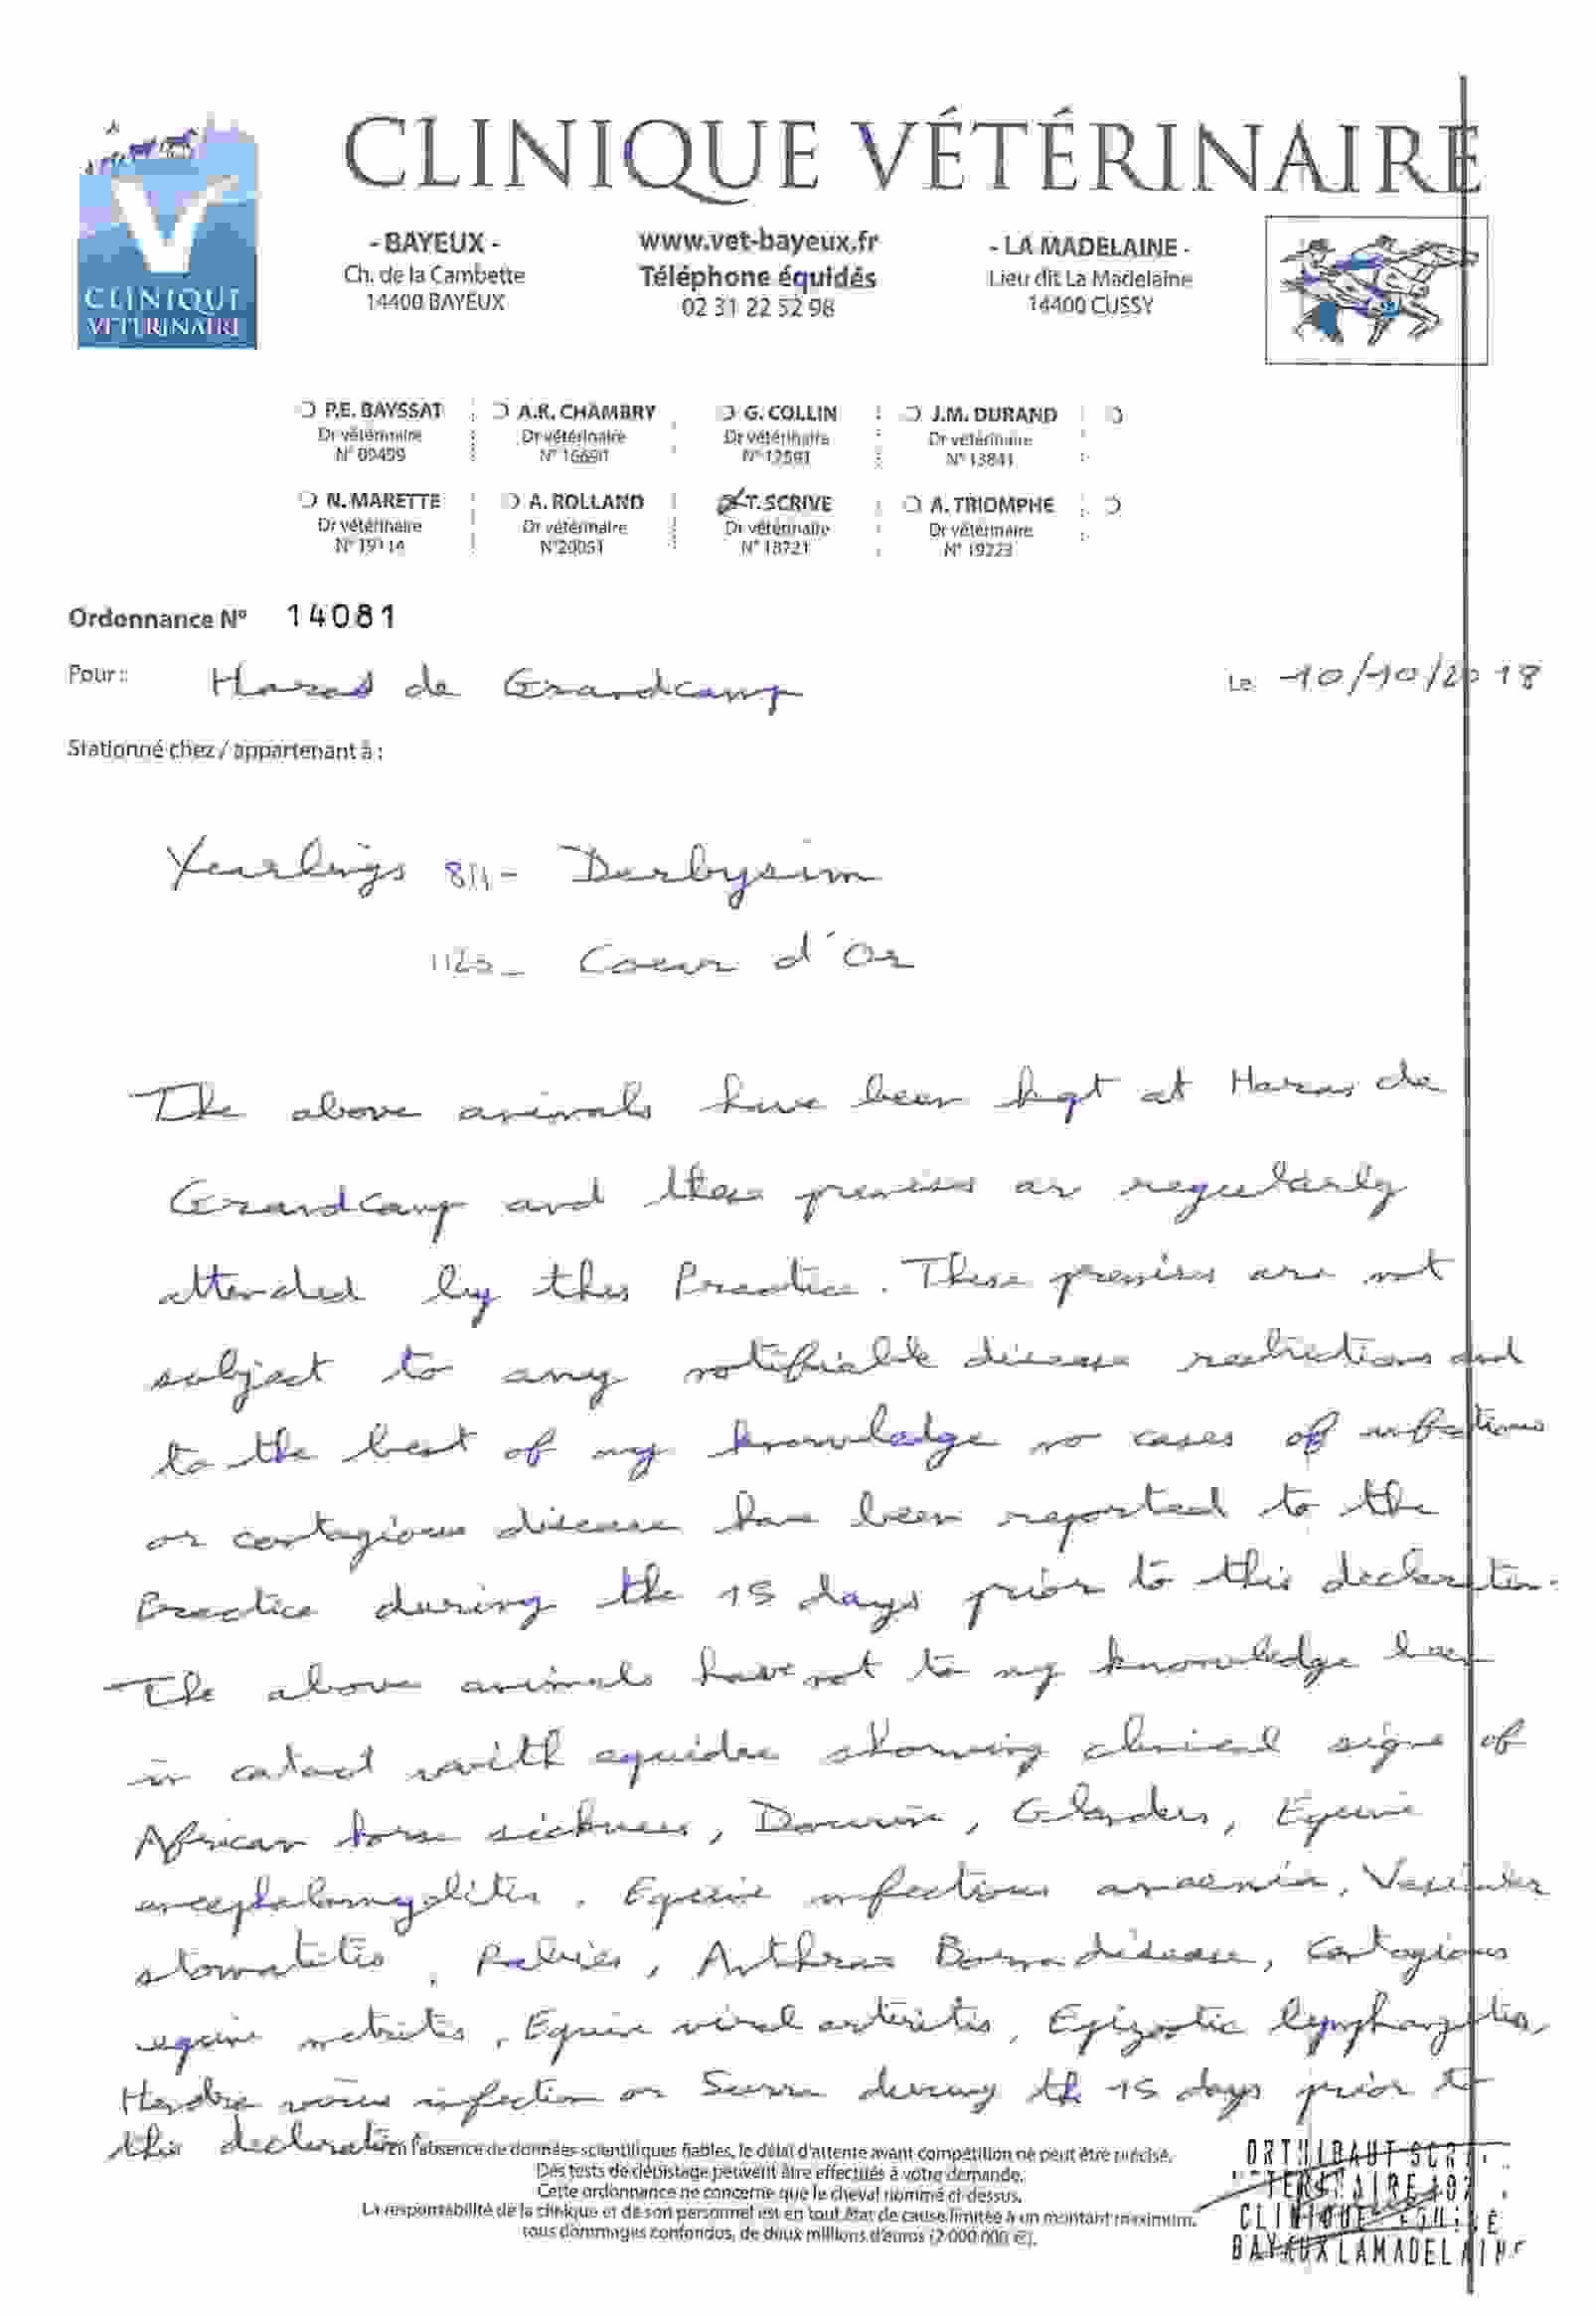 CLINIQUE VÉTÉRINAIRE
CLINIQUE
VÉTÉRINAIRE
- BAYEUX -
Ch. de la Cambette
14400 BAYEUX
www.vet-bayeux.fr
Téléphone équidés
02 31 22 52 98
- LA MADELAINE -
Lieu dit La Madelaine
14400 CUSSY
P.E. BAYSSAT
Dr vétérinaire
A.R. CHAMBRY
Dr vétérinaire
G. COLLIN
Dr vétérinaire
J.M. DURAND
Dr vétérinaire
N° 13841
N. MARETTE
Dr vétérinaire
N° 19114
A. ROLLAND
Dr vétérinaire
N°20051
T. SCRIVE
Dr vétérinaire
N° 18721
A. TRIOMPHE
Dr vétérinaire
N° 19223
Ordonnance N° 14081
Pour : Haras de Grandcamp
Le 10/10/2018
Stationné chez / appartenant à :
Yearlings - Derbysim
- Coeur d'Or
The above animals have been kept at Haras de
GrandCamp and these premises are regularly
attended by this Practice. These premises are not
subject to any notifiable disease restrictions and
to the best of my knowledge no cases of infectious
or contagious disease have been reported to the
Practice during the 15 days prior to this declaration.
The above animals have not to my knowledge been
in contact with equidae showing clinical signs of
African horse sickness, Dourine, Glanders, Equine
encephalomyelitis, Equine infectious anaemia, Vesicular
stomatitis, Rabies, Anthrax Borna disease, Contagious
equine metritis, Equine viral arteritis, Epizootic lymphangitis,
Hendra virus infection or Surra during the 15 days prior to
this declaration
En l'absence de données scientifiques fiables, le délai d'attente avant compétition ne peut être précisé.
Des tests de dépistage peuvent être effectués à votre demande.
Cette ordonnance ne concerne que le cheval nommé ci-dessus.
La responsabilité de la clinique et de son personnel est en tout état de cause limitée à un montant maximum,
tous dommages confondus, de deux millions d'euros (2 000 000 €).
CLINIQUE